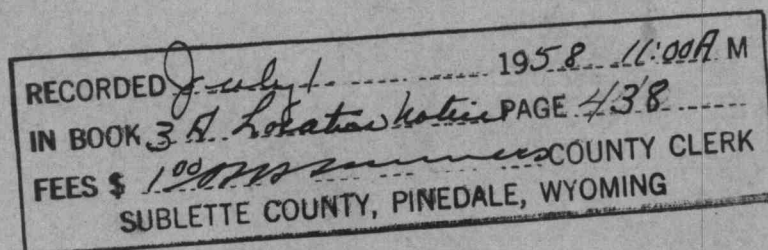 RECORDED July 1 1958 11:00 A M
IN BOOK 3 A Location Notice PAGE 438
FEES $ 1.00 COUNTY CLERK
SUBLETTE COUNTY, PINEDALE, WYOMING